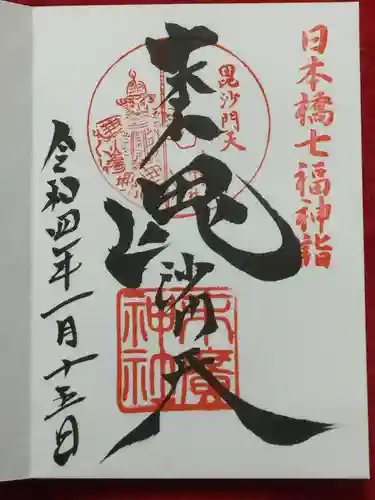 日本橋七福神詣
毘沙門天
毘沙門天
末廣神社
令和四年一月十五日